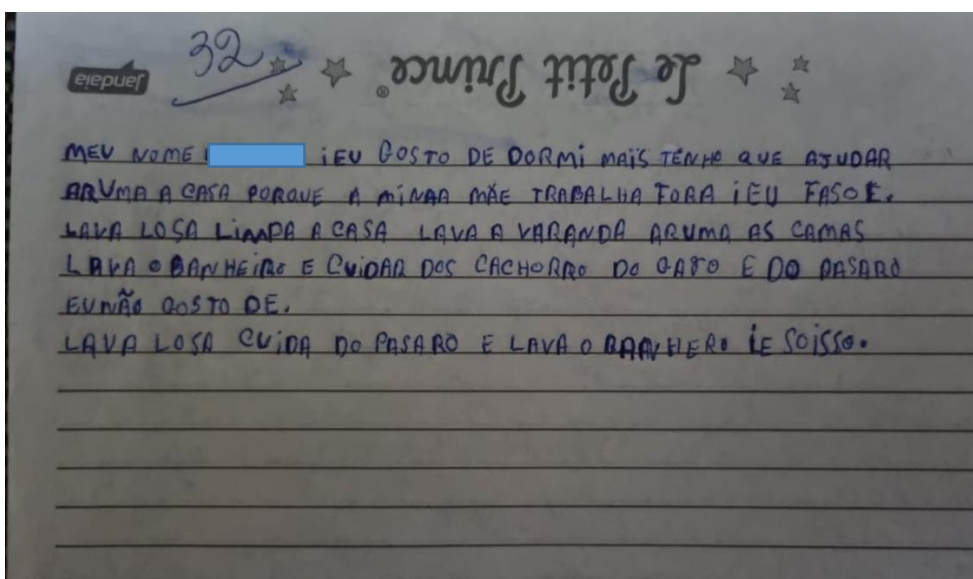 jandaia 32 Le Petit Prince®
MEU NOME iEU GOSTO DE DORMi MAiS TENHO QUE AJUDAR
ARUMA A CASA PORQUE A MiNAA MÃE TRABALHA FORA iEU FASO E.
LAVA LOSA LIMPA A CASA LAVA A VARANDA ARUMA AS CAMAS
LAVA O BANHEiRO E CUiDAR DOS CACHORRO DO GATO E DO PASARO
EU NÃO GOSTO DE.
LAVA LOSA CUiDA DO PASARO E LAVA O BAANHERO iE SOiSSO.